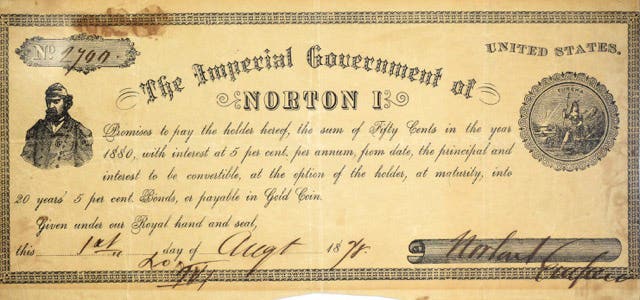 No 2700.
UNITED STATES.
The Imperial Government of
NORTON I.
EUREKA
Promises to pay the holder hereof, the sum of Fifty Cents in the year
1880, with interest at 5 per cent. per annum, from date, the principal and
interest to be convertible, at the option of the holder, at maturity, into
20 years' 5 per cent. Bonds, or payable in Gold Coin.
Given under our Royal hand and seal,
this 1st day of Augt 1878.
Norton I
Emperor